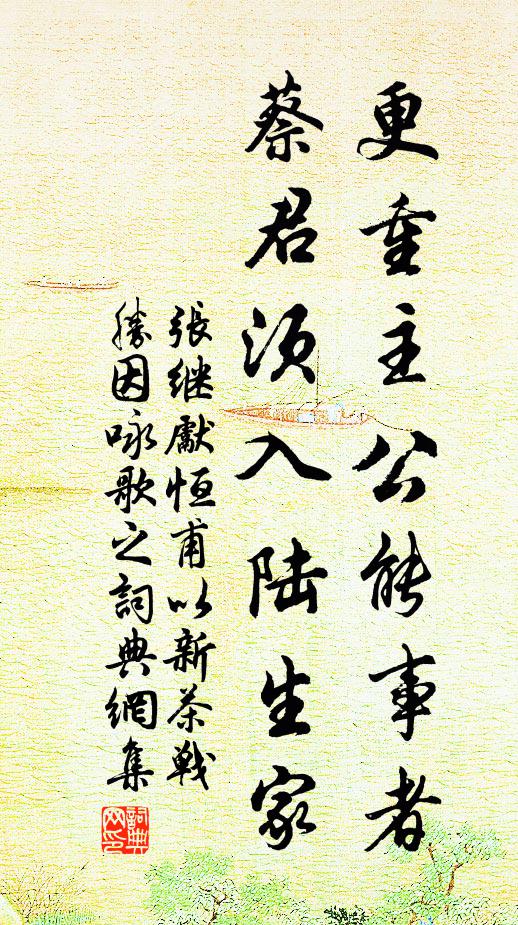 更重主公能事者
蔡君须入陆生家
張继獻恒甫以新茶戦
勝因咏歌之詞典網集
詞典网印